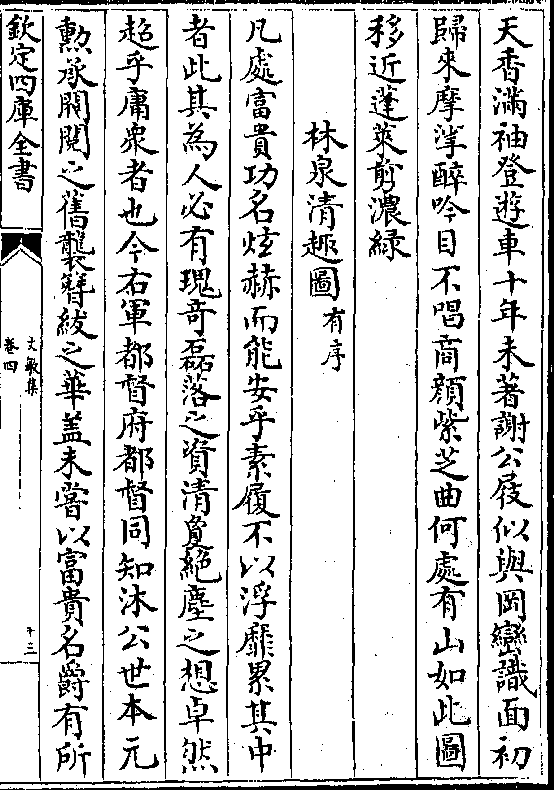 天香滿袖登遊車十年未著謝公屐似與岡巒識面初
歸來摩挲醉吟目不唱商顔紫芝曲何處有山如此圖
移近蓬萊剪濃綠
林泉清趣圖有序
凡處富貴功名炫赫而能安乎素履不以浮靡累其中
者此其為人必有瑰奇磊落之資清敻絶塵之想卓然
超乎庸衆者也今右軍都督府都督同知沐公世本元
勲承閥閱之舊襲簪紱之華蓋未嘗以富貴名爵有所
欽定四庫全書
文敏集
卷四
十三